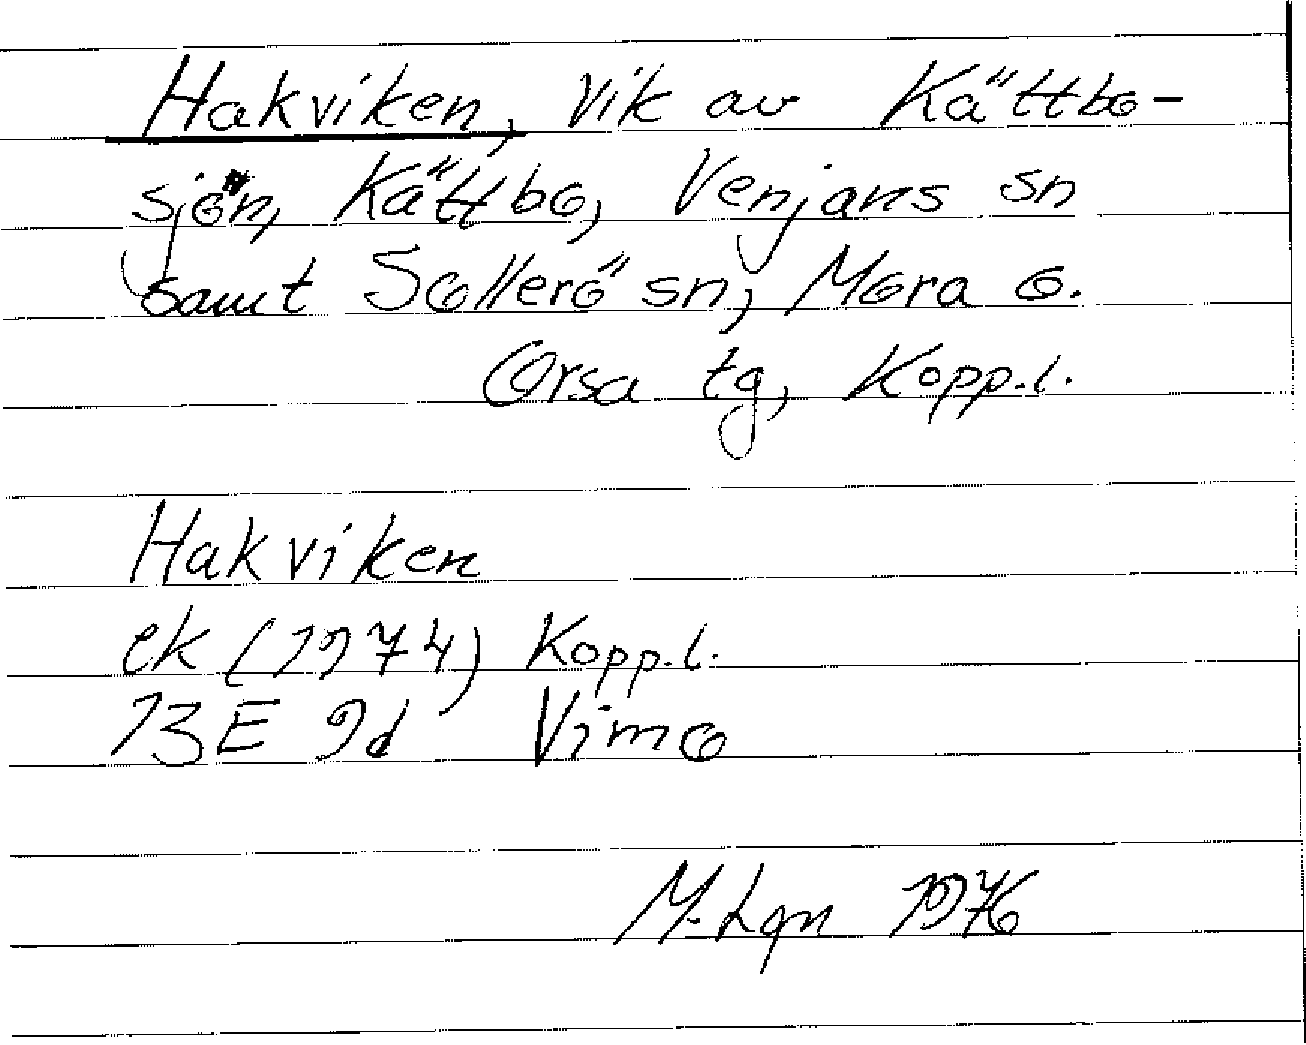 Hakviken, vik av Kättbo-
sjön, Kättbo, Venjans sn
samt Sollerö sn, Mora o.
Orsa tg, Kopp.l.
Hakviken
ek (1974) Kopp.l.
13E 9d Vimo
M. Lgn 1976